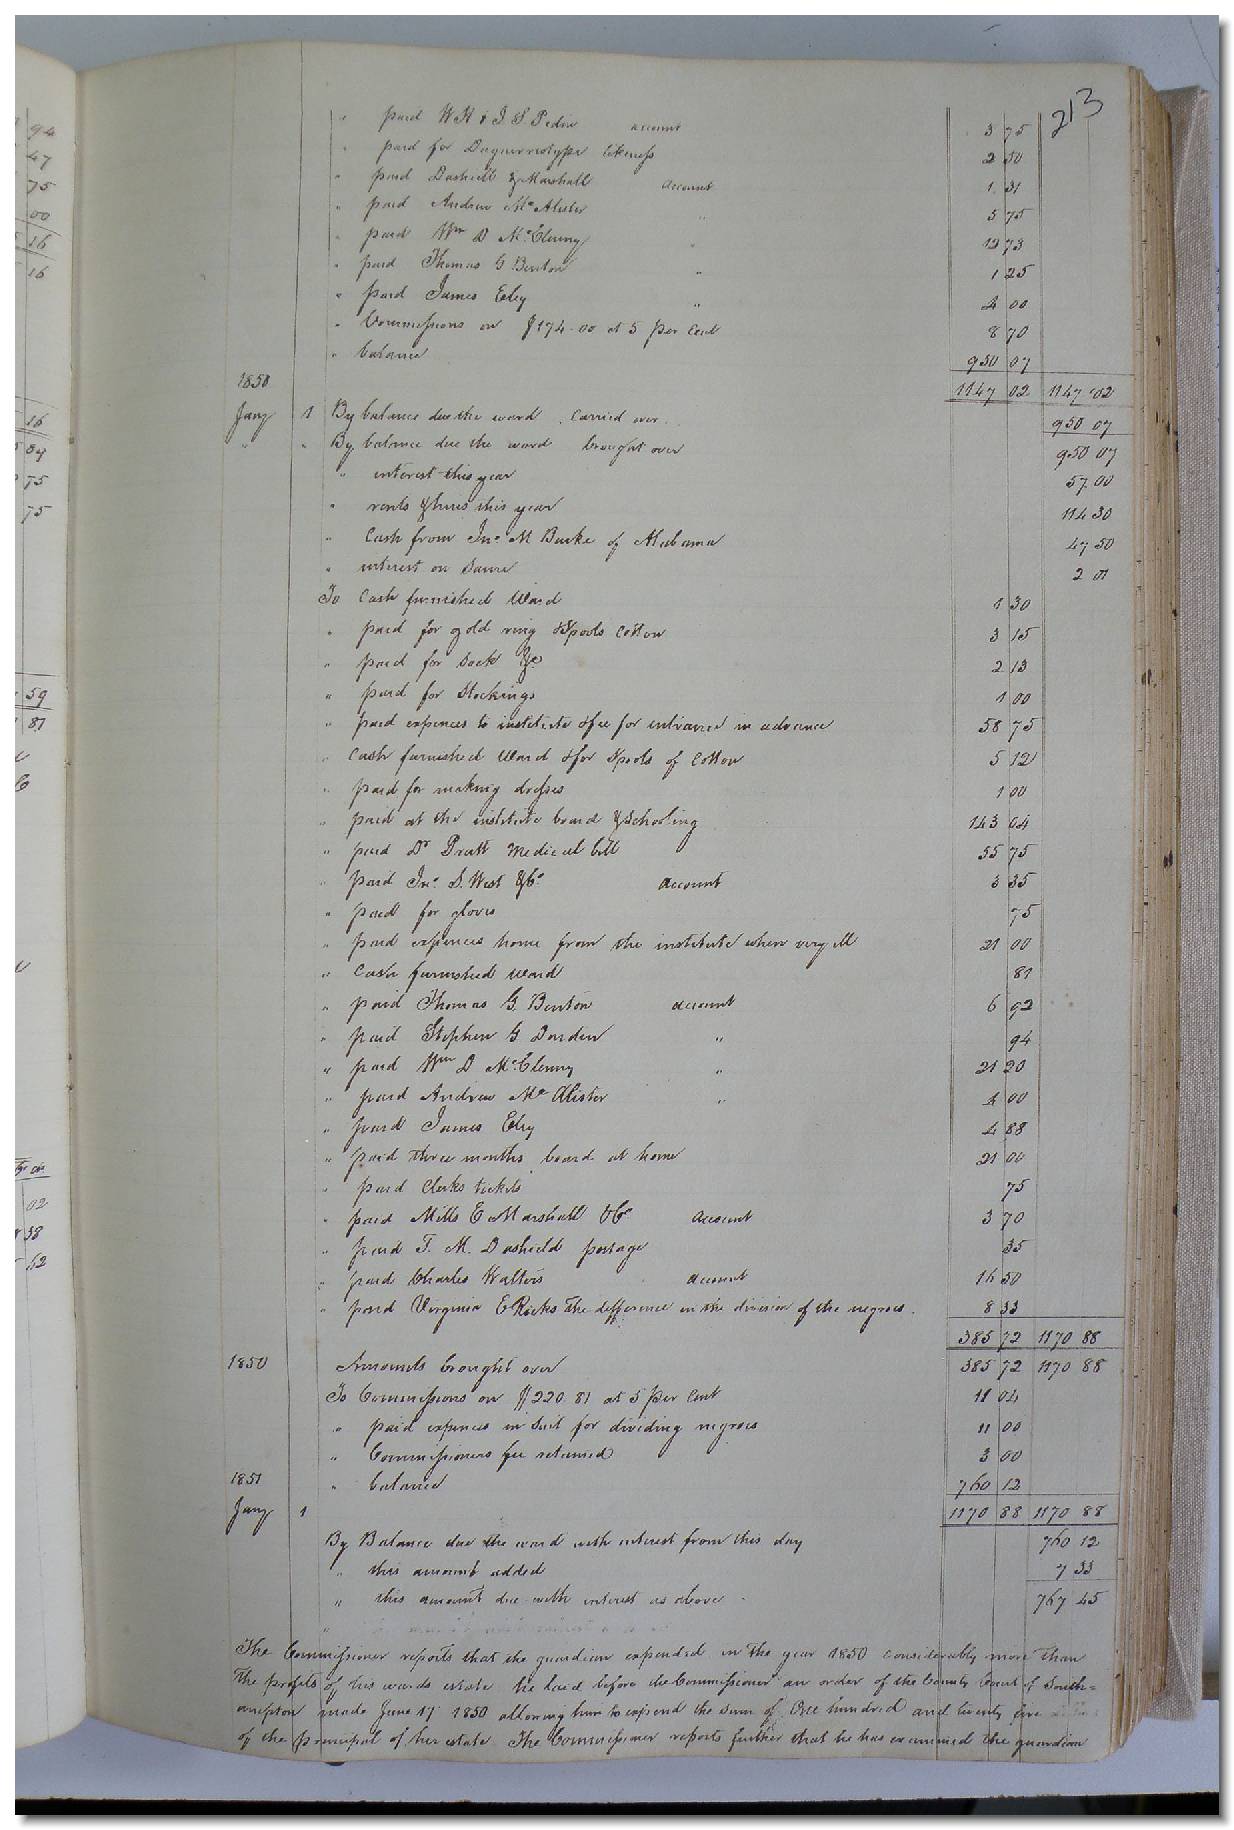 213
" paid W H & J. S. Pedin account 3 75
" paid for Daguerreotype likeness 2 50
" paid Dashiell & Marshall account 1 31
" paid Andrew McAlister " 5 75
" paid Wm D McClenny " 19 73
" paid Thomas G Benton " 1 25
" paid James Eley " 4 00
" Commissions on $174.00 at 5 per cent 8 70
" balance 950 07
1850 1147 02 1147 02
Jany 1 By balance due the ward carried over 950 07
" " By balance due the ward brought over 950 07
" interest this year 57 00
" rents & hires this year 114 30
" Cash from Jno M Burke of Alabama 47 50
" interest on same 2 01
To Cash furnished Ward 1 30
" paid for gold ring & Spools Cotton 3 15
" paid for Sack &c 2 13
" paid for Stockings 1 00
" paid expences to institute & fee for entrance in advance 58 75
" Cash furnished Ward & for Spools of Cotton 5 12
" paid for making dresses 1 00
" paid at the institute board & Schooling 143 04
" paid Dr Pratt medical bill 55 75
" paid Jno. S. West & Co account 3 35
" paid for gloves 75
" paid expences home from the institute when very ill 21 00
" Cash furnished Ward 81
" paid Thomas G. Benton account 6 92
" paid Stephen G Darden " 94
" paid Wm D McClenny " 21 20
" paid Andrew McAlister " 4 00
" paid James Eley 4 88
" paid three months board at home 21 00
" paid Clerks tickets 75
" paid Mills E Marshall & Co account 3 70
" paid T. M. Dashield postage 35
" paid Charles Walters account 16 50
" paid Virginia E Ricks the difference in the division of the negroes. 8 33
385 72 1170 88
1850 Amounts brought over 385 72 1170 88
To Commissions on $220.81 at 5 per Cent 11 04
" paid expences in Suit for dividing negroes 11 00
" Commissioners fee returned 3 00
1851 " balance 760 12
Jany 1 1170 88 1170 88
By Balance due the ward with interest from this day 760 12
" this amount added 7 33
" this amount due with interest as above 767 45
The Commissioner reports that the guardian expended in the year 1850 considerably more than
the profits of his wards estate he laid before the Commissioner an order of the County Court of South=
ampton made June 17 1850 allowing him to expend the sum of One hundred and twenty five
of the principal of her estate. The Commissioner reports further that he has examined the guardian
94
47
75
00
16
16
16
04
75
75
59
81
02
38
62